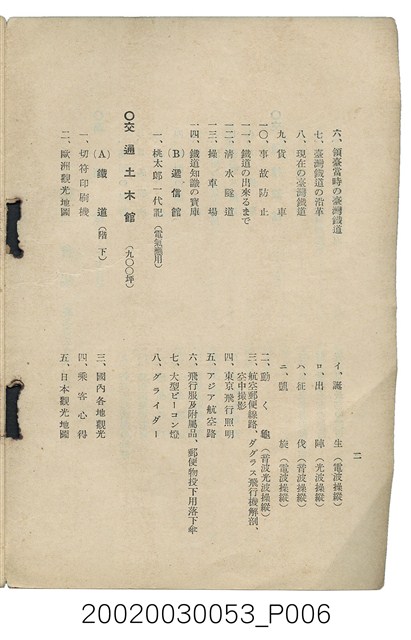 六、領臺當時の臺灣鐵道
七、臺灣鐵道の沿革
八、現在の臺灣鐵道
九、貨車
一〇、事故防止
一一、鐵道の出來るまで
一二、清水隧道
一三、操車場
一四、鐵道知識の寶庫
(B)遞信館
一、桃太郎一代記(電氣應用)
イ、誕生(電波操縱)
ロ、出陣(光波操縱)
ハ、征伐(音波操縱)
ニ、凱旋(電波操縱)
二、動く龜(音波光波操縱)
三、航空郵便線路、ダグラス飛行機解剖、
空中撮影
四、東京飛行照明
五、アジア航空路
六、飛行服及附屬品、郵便物投下用落下傘
七、大型ビーコン燈
八、グライダー
〇交通土木館(九〇〇坪)
(A)鐵道(階下)
一、切符印刷機
二、歐洲觀光地圖
三、國內各地觀光
四、乘客心得
五、日本觀光地圖
二
20020030053_P006